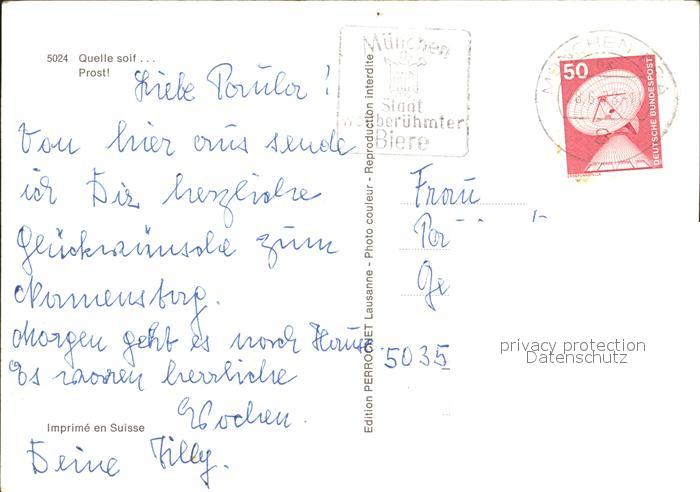 5024 Quelle soif . . .
Prost!
Liebe Paula !
Von hier aus sende
ich Dir herzliche
Glückwünsche zum
Namenstag.
Morgen geht es nach Hause.
Es waren herrliche
Wochen.
Deine Tilly.
Imprimé en Suisse
Edition PERROCHET Lausanne - Photo couleur - Reproduction interdite
München
Stadt
weltberühmter
Biere
MÜNCHEN
50
DEUTSCHE BUNDESPOST
Frau
Ge
5035
privacy protection
Datenschutz